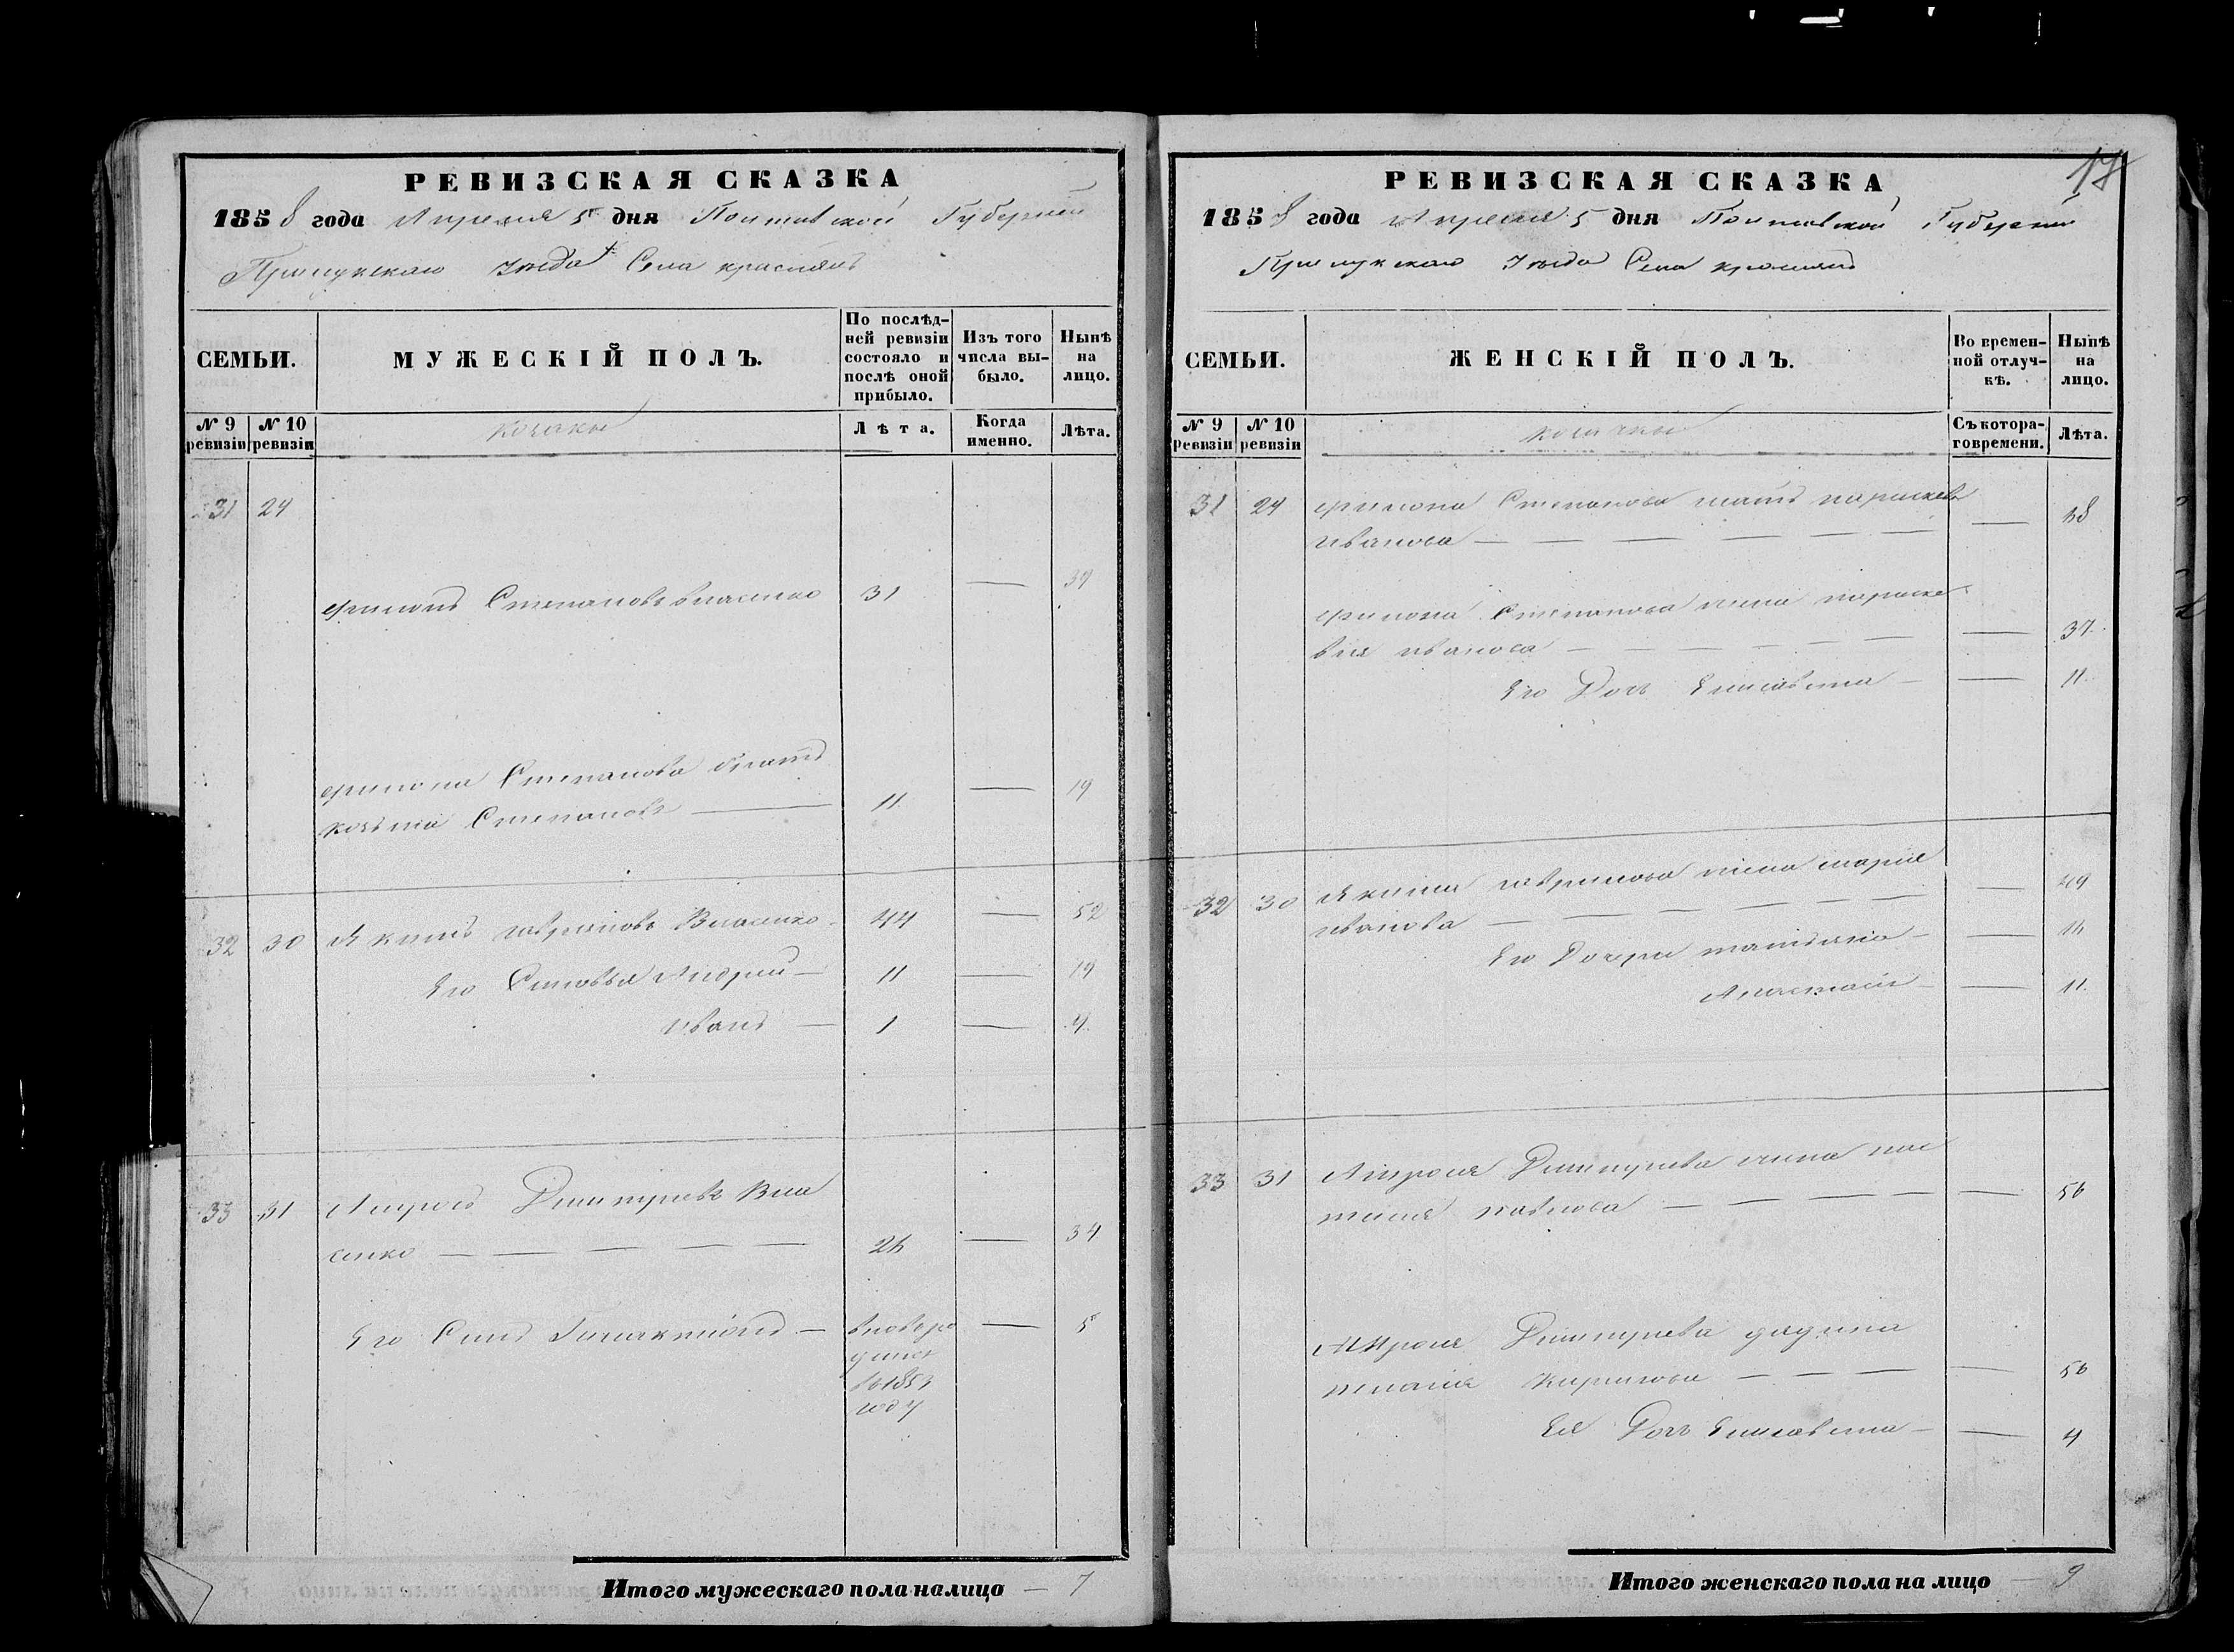 РЕВИЗСКАЯ СКАЗКА
1858 года Апреля 5 дня Полтавской Губернии
Прилукскаго Уезда Села краслянъ
СЕМЬИ.
МУЖЕСКІЙ ПОЛЪ.
По послѣд-
ней ревизіи
состояло и
послѣ оной
прибыло.
Изъ того
числа вы-
было.
Нынѣ
на
лицо.
№ 9
ревизіи
№ 10
ревизіи
козаки
Лѣта.
Когда
именно.
Лѣта.
31 24
филипъ Степановъ власенко 31 — 39
филипа Степанова братъ
козьма Степановъ — 11 — 19
32 30 Якимъ гавриловъ Власенко 44 — 52
Его Сыновья Андрей — 11 — 19
иванъ — 1 — 9
33 31 Миронъ Дмитріевъ Вла
сенко — — — — — 26 — 34
Его Сынъ — вновь ро — 5
дился
въ 1853
году
Итого мужескаго пола налицо — 7
17
РЕВИЗСКАЯ СКАЗКА
1858 года Апреля 5 дня Полтавской Губернии
Прилукскаго Уезда Села краслянъ
СЕМЬИ.
ЖЕНСКІЙ ПОЛЪ.
Во времен-
ной отлуч-
кѣ.
Нынѣ
на
лицо.
№ 9
ревизіи
№ 10
ревизіи
козачки
Съ котора-
го времени.
Лѣта.
31 24 филипа Степанова мать параскев
иванова — — — — — — — 58
филипа Степанова жена параске
вия иванова — — — — — — 37
Его Дочь Елисавета — — 11
32 30 Якима гаврилова жена мария
иванова — — — — — — — 49
Его Дочери татьяна — — 16
Анастасия — — 11
33 31 Дмитріева
павлова — — — — — 56
Дмитріева
Кирилова — — — — 56
Ея Дочь Елисавета — — 4
Итого женскаго пола на лицо — 9